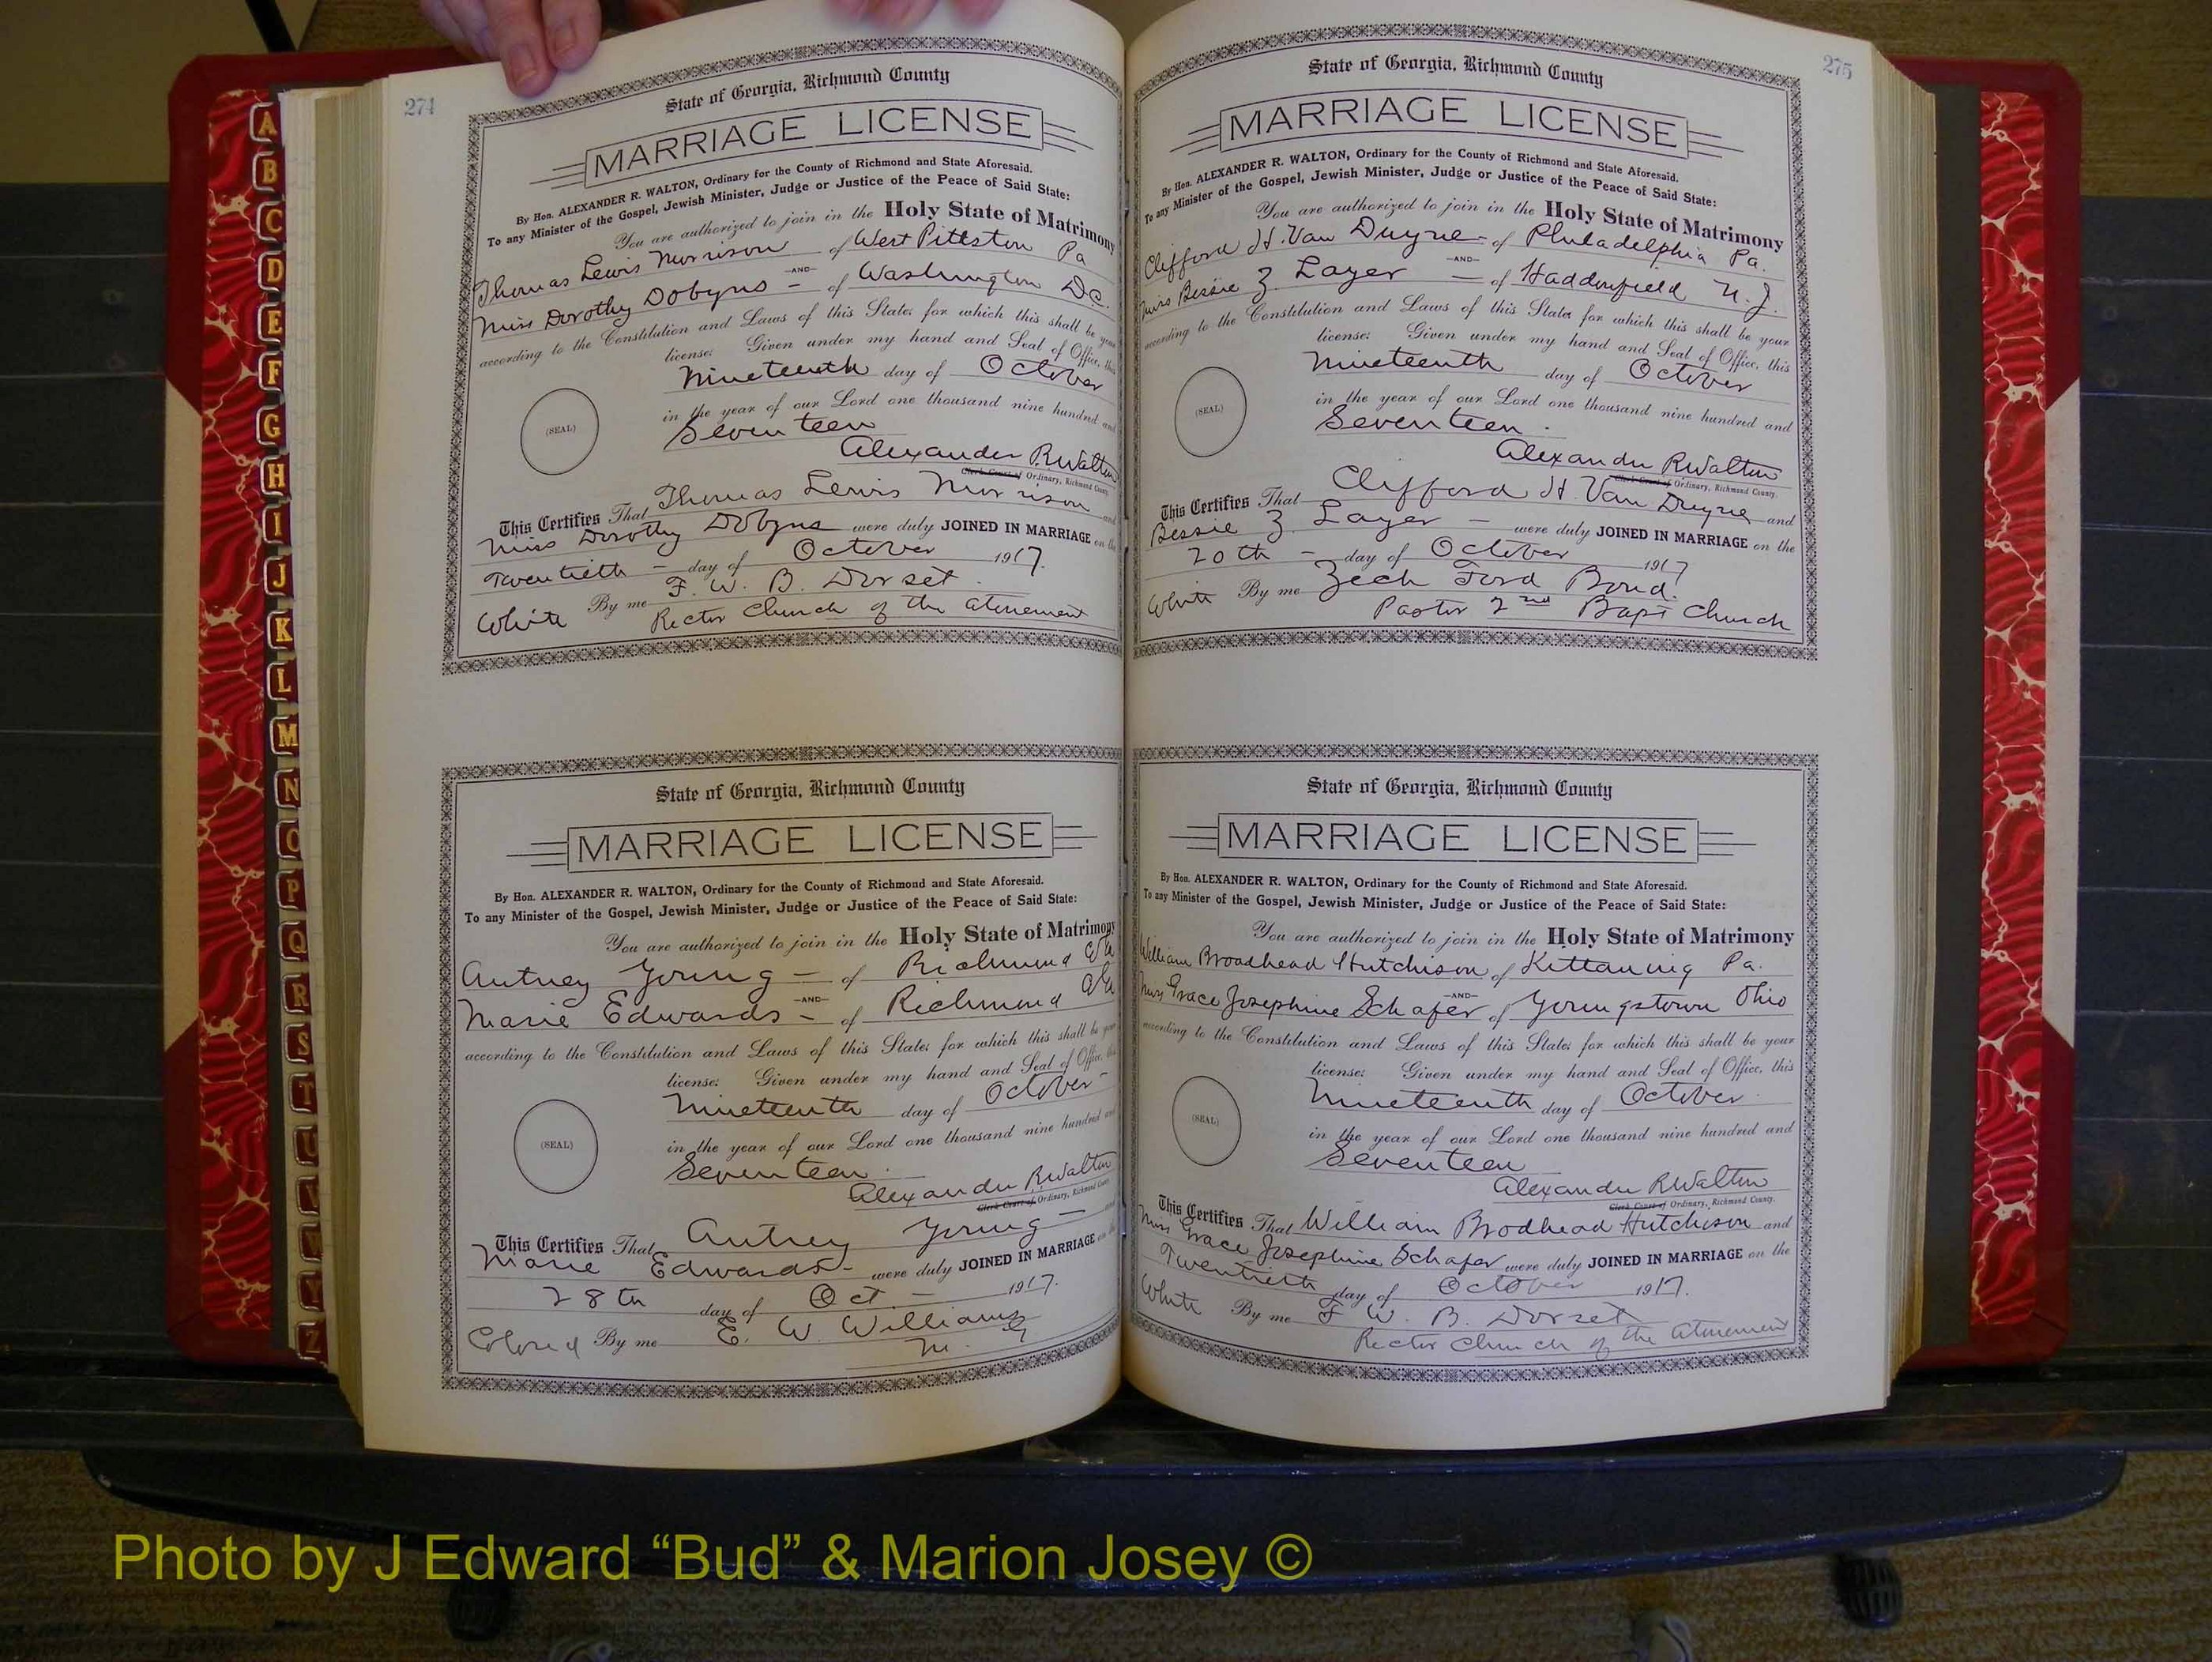 274
State of Georgia, Richmond County
MARRIAGE LICENSE
By Hon. ALEXANDER R. WALTON, Ordinary for the County of Richmond and State Aforesaid.
To any Minister of the Gospel, Jewish Minister, Judge or Justice of the Peace of Said State:
You are authorized to join in the Holy State of Matrimony
Thomas Lewis Morrison of West Pittston Pa
-AND-
Miss Dorothy Dobyns - of Washington D.C.
according to the Constitution and Laws of this State; for which this shall be your
license: Given under my hand and Seal of Office, this
Nineteenth day of October
(SEAL)
in the year of our Lord one thousand nine hundred and
Seventeen
Alexander R Walton
Clerk Court of Ordinary, Richmond County.
This Certifies That Thomas Lewis Morrison and
Miss Dorothy Dobyns were duly JOINED IN MARRIAGE on the
Twentieth - day of October 1917.
White By me F. W. B. Dorset.
Rector Church of the Atonement
State of Georgia, Richmond County
MARRIAGE LICENSE
By Hon. ALEXANDER R. WALTON, Ordinary for the County of Richmond and State Aforesaid.
To any Minister of the Gospel, Jewish Minister, Judge or Justice of the Peace of Said State:
You are authorized to join in the Holy State of Matrimony
Autney Young - of Richmond Ga
-AND-
Marie Edwards - of Richmond Ga
according to the Constitution and Laws of this State; for which this shall be your
license: Given under my hand and Seal of Office, this
Nineteenth day of October -
(SEAL)
in the year of our Lord one thousand nine hundred and
Seventeen.
Alexander R Walton
Clerk Court of Ordinary, Richmond County.
This Certifies That Autney Young - and
Marie Edwards - were duly JOINED IN MARRIAGE on the
28th day of Oct - 1917.
Colored By me E. W. Williams
M. G.
275
State of Georgia, Richmond County
MARRIAGE LICENSE
By Hon. ALEXANDER R. WALTON, Ordinary for the County of Richmond and State Aforesaid.
To any Minister of the Gospel, Jewish Minister, Judge or Justice of the Peace of Said State:
You are authorized to join in the Holy State of Matrimony
Clifford H. Van Duyne - of Philadelphia Pa.
-AND-
Miss Bessie Z. Layer - of Haddonfield N. J.
according to the Constitution and Laws of this State; for which this shall be your
license: Given under my hand and Seal of Office, this
Nineteenth day of October
(SEAL)
in the year of our Lord one thousand nine hundred and
Seventeen.
Alexander R Walton
Clerk Court of Ordinary, Richmond County.
This Certifies That Clifford H. Van Duyne and
Bessie Z. Layer - were duly JOINED IN MARRIAGE on the
20th - day of October 1917
White By me Zech Ford Bond.
Pastor 2nd Bapt Church
State of Georgia, Richmond County
MARRIAGE LICENSE
By Hon. ALEXANDER R. WALTON, Ordinary for the County of Richmond and State Aforesaid.
To any Minister of the Gospel, Jewish Minister, Judge or Justice of the Peace of Said State:
You are authorized to join in the Holy State of Matrimony
William Broadhead Hutchison of Kittaning Pa.
-AND-
Miss Grace Josephine Schafer of Youngstown Ohio
according to the Constitution and Laws of this State; for which this shall be your
license: Given under my hand and Seal of Office, this
Nineteenth day of October
(SEAL)
in the year of our Lord one thousand nine hundred and
Seventeen
Alexander R Walton
Clerk Court of Ordinary, Richmond County.
This Certifies That William Brodhead Hutchison and
Miss Grace Josephine Schafer were duly JOINED IN MARRIAGE on the
Twentieth day of October 1917.
White By me F W. B. Dorset
Rector Church of the Atonement
A
B
C
D
E
F
G
H
I
J
K
L
M
N
O
P
Q
R
S
T
U
V
Z
Photo by J Edward “Bud” & Marion Josey ©